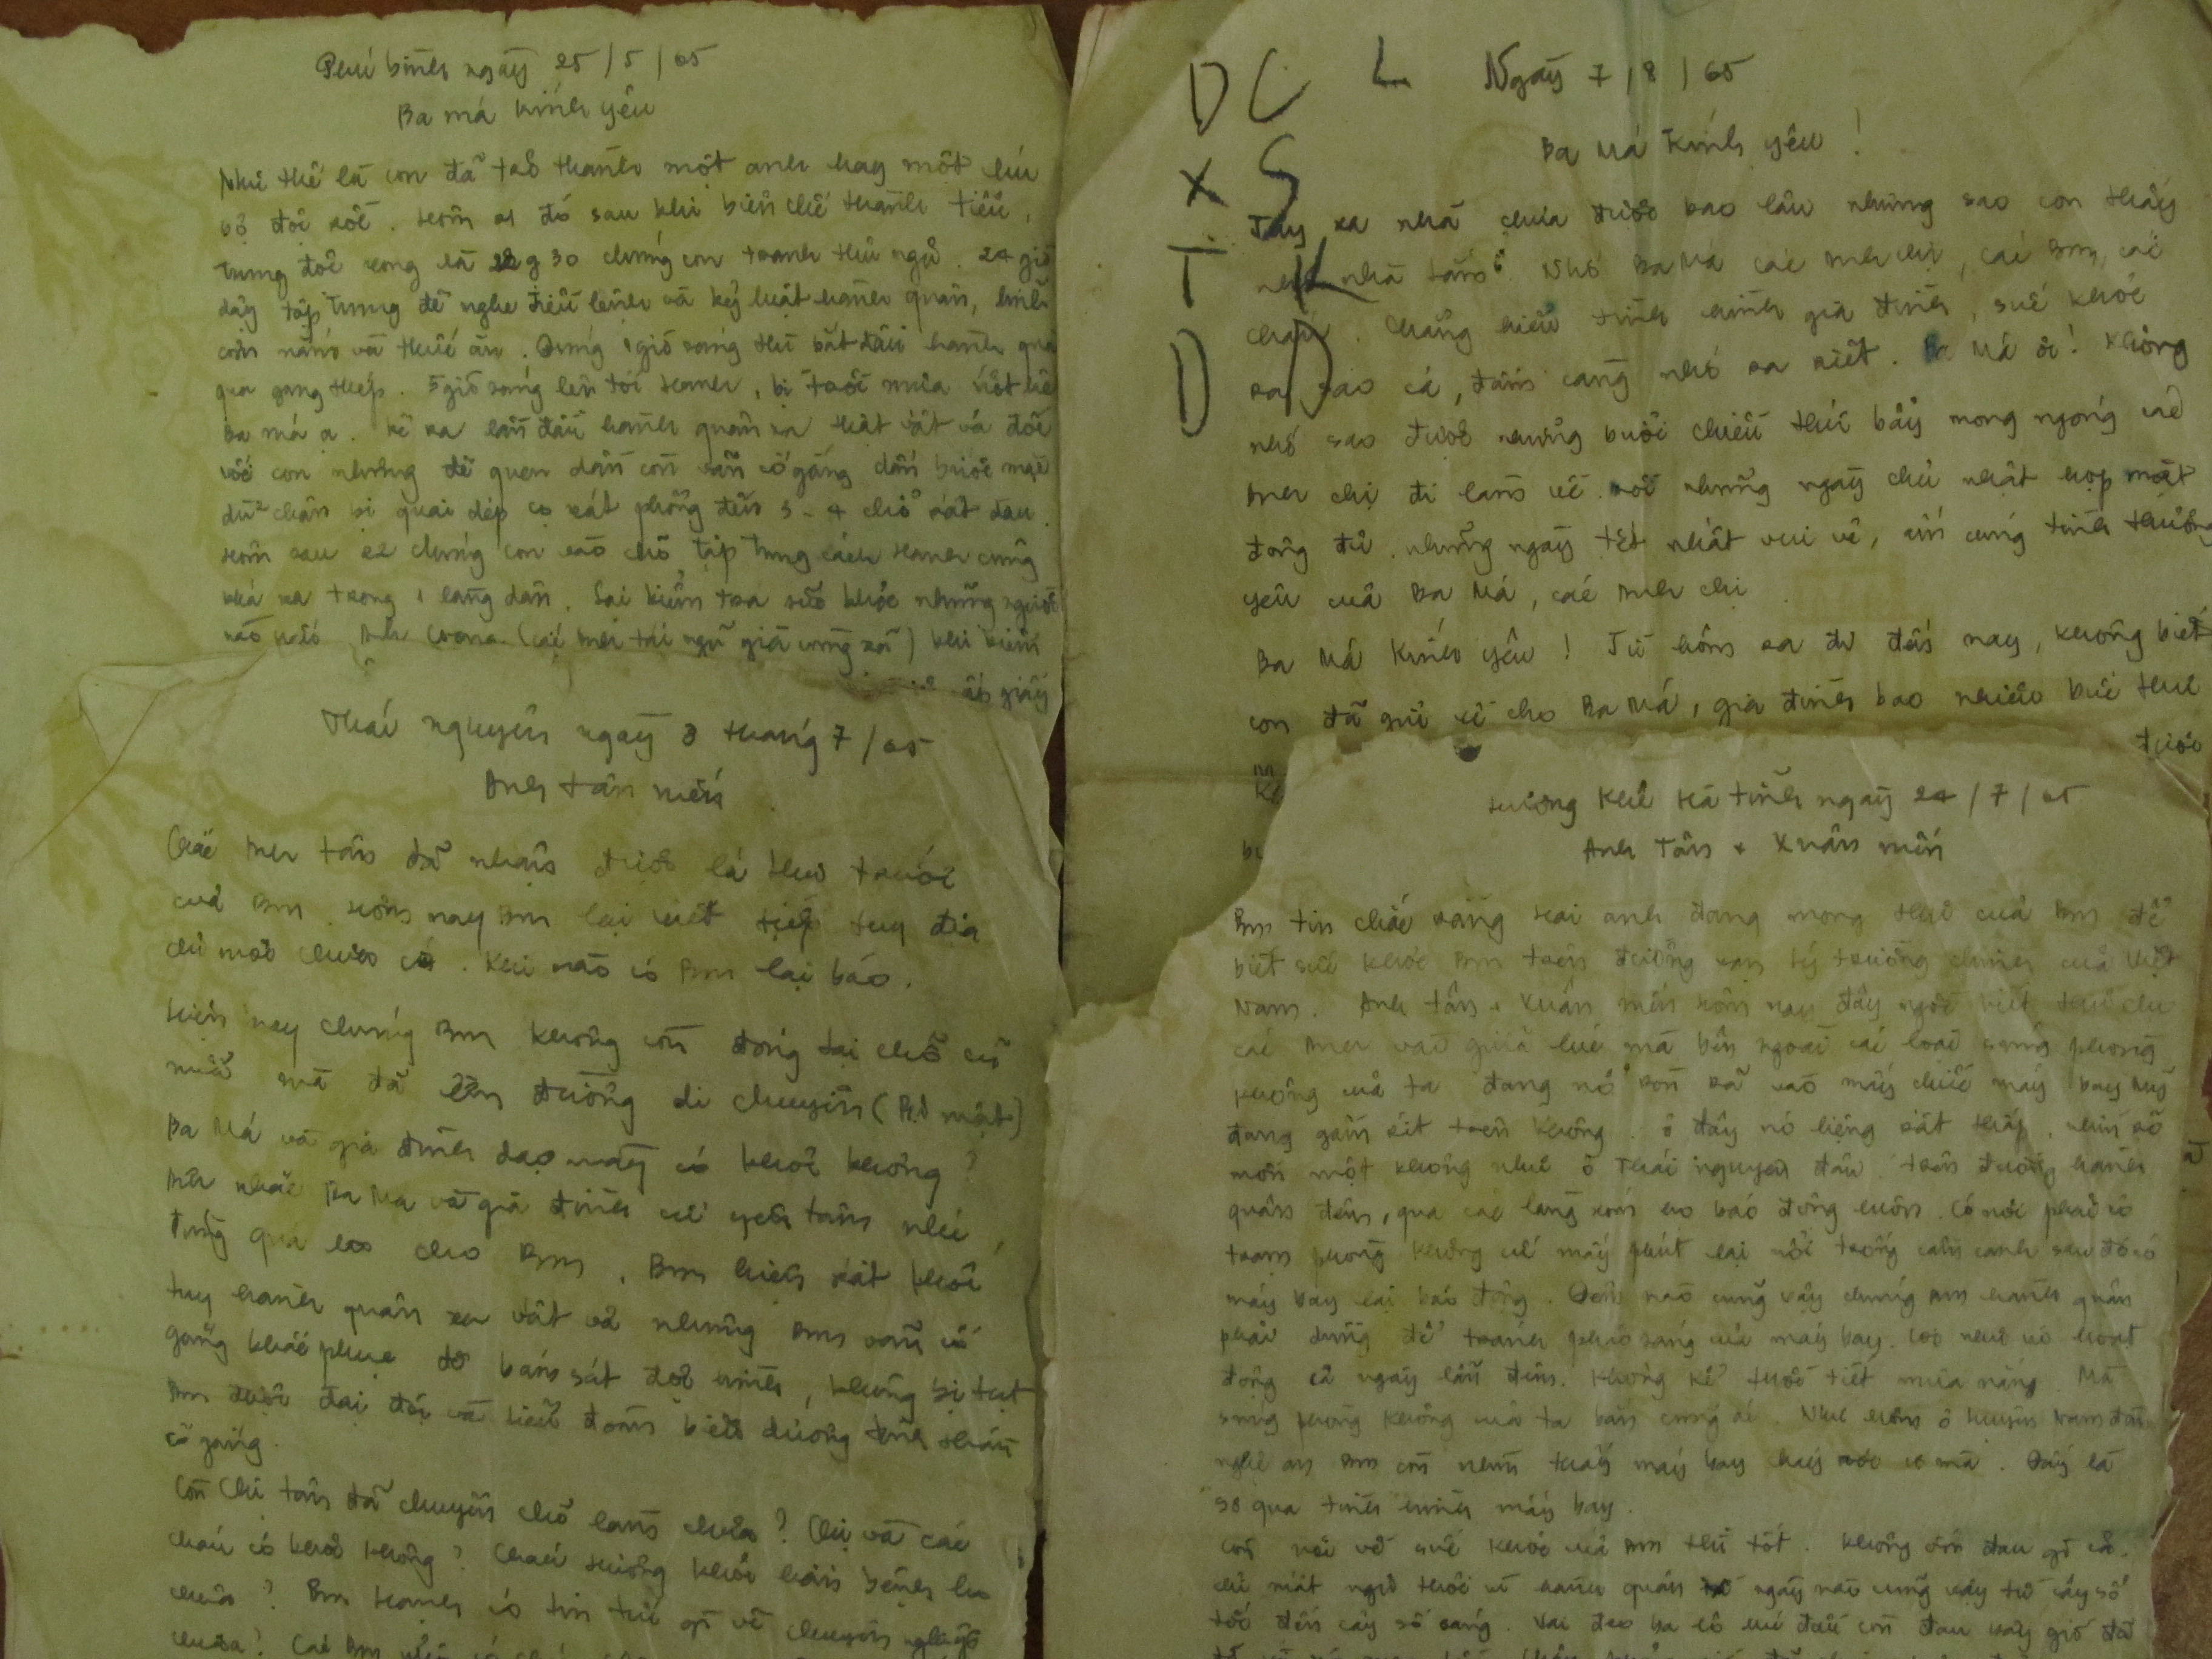 Phú bình ngày 25/5/65
Ba má kính yêu
Như thế là con đã trở thành một anh hay một chú
bộ đội rồi. Hôm 21 đó sau khi biên chế thành tiểu,
trung đội xong là 22g30 chúng con tranh thủ ngủ. 24 giờ
dậy tập trung để nghe điều lệnh và kỷ luật hành quân, lĩnh
cơm nắm và thức ăn. Đúng 1 giờ sáng thì bắt đầu hành quâ
qua gang thép. 5 giờ sáng lên tới Hanh, bị trời mưa ướt hế
Ba má ạ. Kể ra lần đầu hành quân xa thật vất vả đối
với con nhưng để quen dần con vẫn cố gắng dấn bước mặc
dù chân bị quai dép cọ xát phồng đến 3-4 chỗ rất đau.
Hôm sau 22 chúng con vào chỗ tập trung cách Hanh cũng
khá xa trong 1 làng dân. Lại kiểm tra sức khỏe những người
nào (các anh tái ngũ già cùng xã) khi kiểm
giấy
Thái nguyên ngày 3 tháng 7/65
Anh Tân mến
Chắc anh Tân đã nhận được lá thư trước
của Em. Hôm nay Em lại viết tiếp tuy địa
chỉ mới chưa có. Khi nào có Em lại báo.
Hiện nay chúng Em không còn đóng tại chỗ cũ
nữa mà đã lên đường di chuyển (Bí mật)
Ba Má và gia đình dạo này có khỏe không?
Anh nhắc Ba Má và gia đình cứ yên tâm nhé,
đừng quá lo cho Em. Em hiện rất khỏe
tuy hành quân xa vất vả nhưng Em vẫn cố
gắng khắc phục để bám sát đội hình, không bị tụt
Em được đại đội và tiểu đoàn biểu dương tinh thần
cố gắng.
Còn Chị Tân đã chuyển chỗ làm chưa? Chị và các
cháu có khỏe không? Cháu Hương khỏi hẳn bệnh ho
chưa? Em Hạnh có tin tức gì về chuyện nghiệp
chưa? Các Em
D C L
X S
T K
D D
Ngày 7/8/65
Ba Má kính yêu!
Tuy xa nhà chưa được bao lâu nhưng sao con thấy
nhớ nhà lắm. Nhớ Ba Má các anh chị, các Em, các
cháu. Chẳng hiểu tình hình gia đình, sức khỏe
ra sao cả, đâm càng nhớ ra riết. Ba Má ơi! Không
nhớ sao được những buổi chiều thứ bẩy mong ngóng các
anh chị đi làm về. Rồi những ngày chủ nhật họp mặt
đông đủ. Những ngày tết nhất vui vẻ, ấm cúng tình thương
yêu của Ba Má, các anh chị.
Ba Má Kính yêu! Từ hôm ra đi đến nay, không biết
con đã gửi về cho Ba Má, gia đình bao nhiêu bức thư
được
Hương Khê Hà Tĩnh ngày 24/7/65
Anh Tân + Xuân mến
Em tin chắc rằng hai anh đang mong thư của Em để
biết sức khỏe Em trên đường vạn lý trường chinh của Việt
Nam. Anh Tân + Xuân mến hôm nay đây ngồi viết thư cho
các anh vào giữa lúc mà bên ngoài các loại súng phòng
không của ta đang nổ ròn rã vào mấy chiếc máy bay Mỹ
đang gầm rít trên không. Ở đây nó liệng rất thấp, nhìn rõ
mồn một không như ở Thái nguyên đâu. Trên đường hành
quân đêm, qua các làng xóm nó báo động luôn. Có nơi phải có
trạm phòng không cứ mấy phút lại nổi trống cầm canh sau đó có
máy bay lại báo động. Đêm nào cũng vậy chúng em hành quân
phải dừng để tránh pháo sáng của máy bay. Coi như nó hoạt
động cả ngày lẫn đêm. Không kể thời tiết mưa nắng. Mà
súng phòng không của ta bắn cũng ác. Như hôm ở huyện Nam đàn
nghệ an Em còn nhìn thấy máy bay cháy rơi cơ mà. Đấy là
sơ qua tình hình máy bay.
Còn nói về sức khỏe của Em thì tốt. Không ốm đau gì cả.
chỉ mất ngủ thôi vì hành quân ngày nào cũng vậy từ cây số
tối đến cây số sáng. Vai đeo ba lô lúc đầu còn đau bây giờ đã